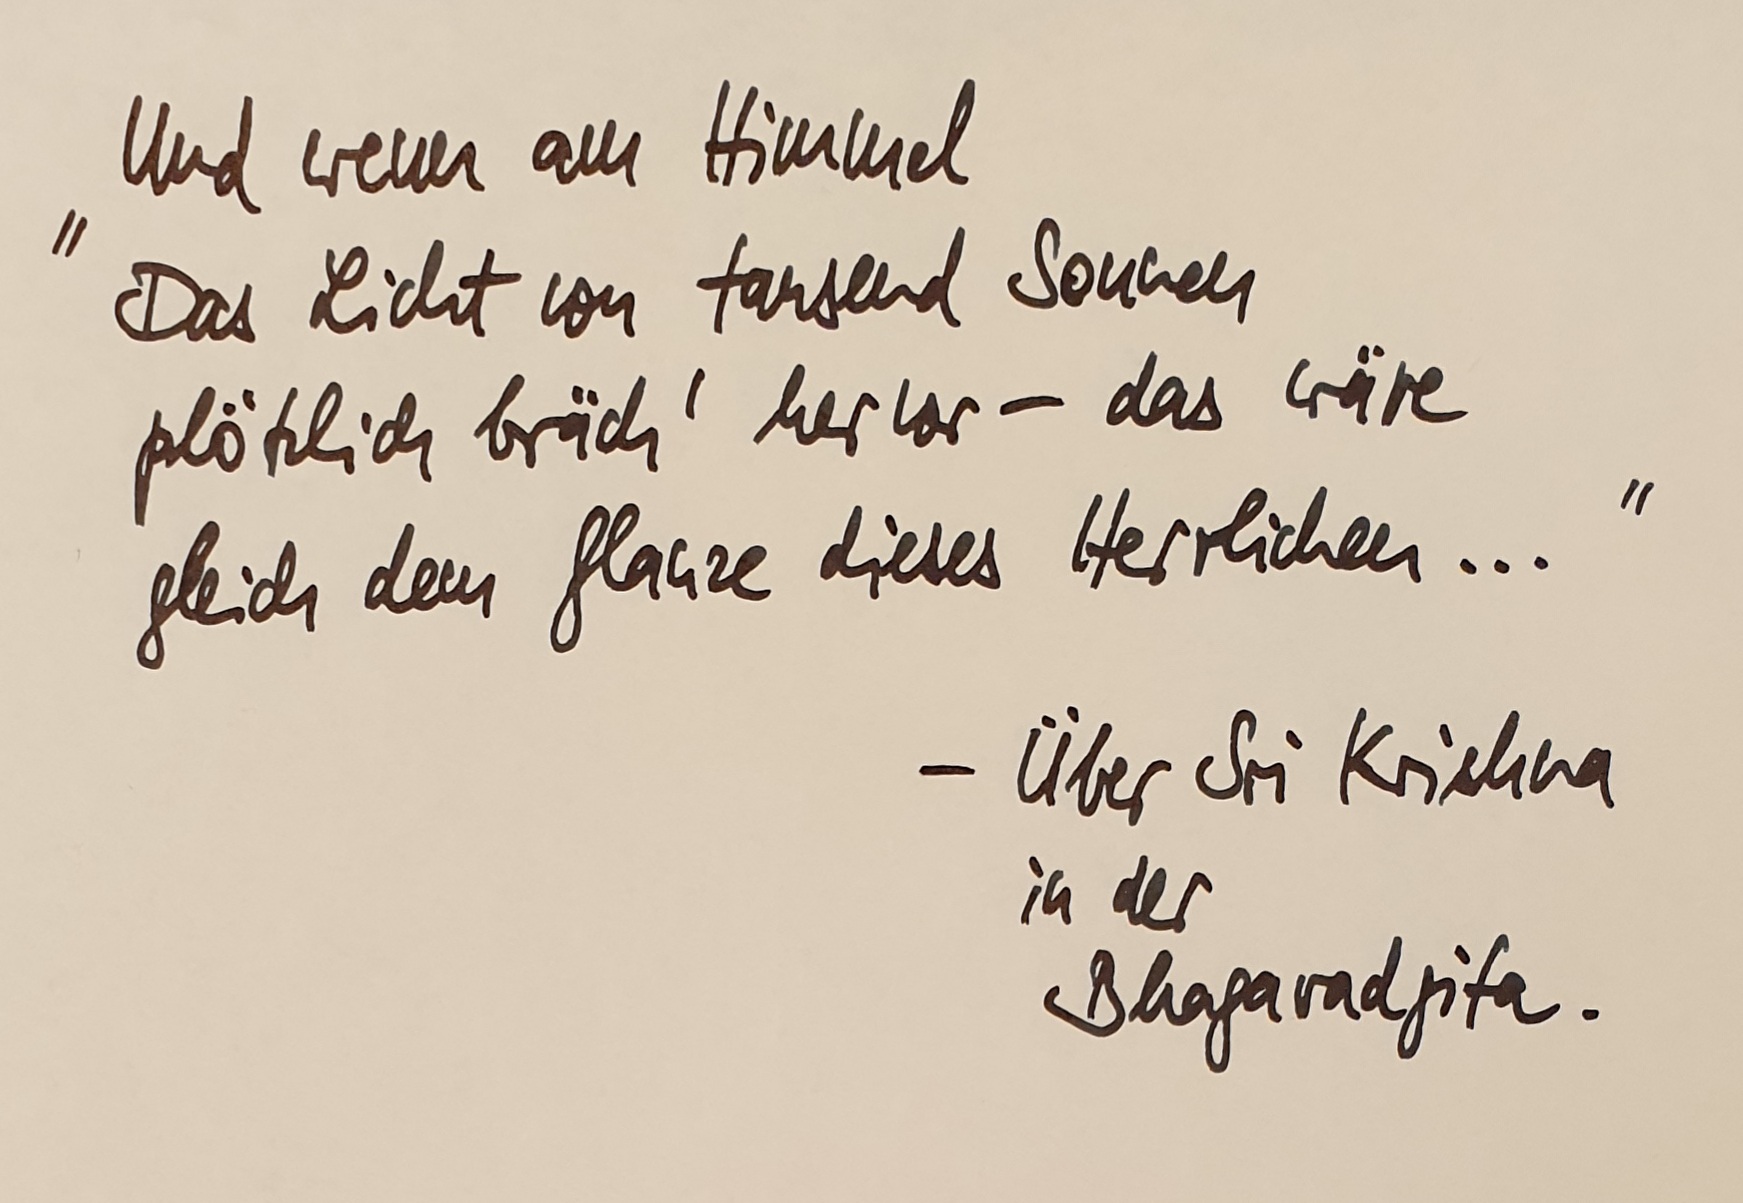 Und wenn am Himmel
"Das Licht von tausend Sonnen
plötzlich bräch' hervor – das wäre
gleich dem Glanze dieses Herrlichen... "
– Über Sri Krishna
in der
Bhagavadgita.